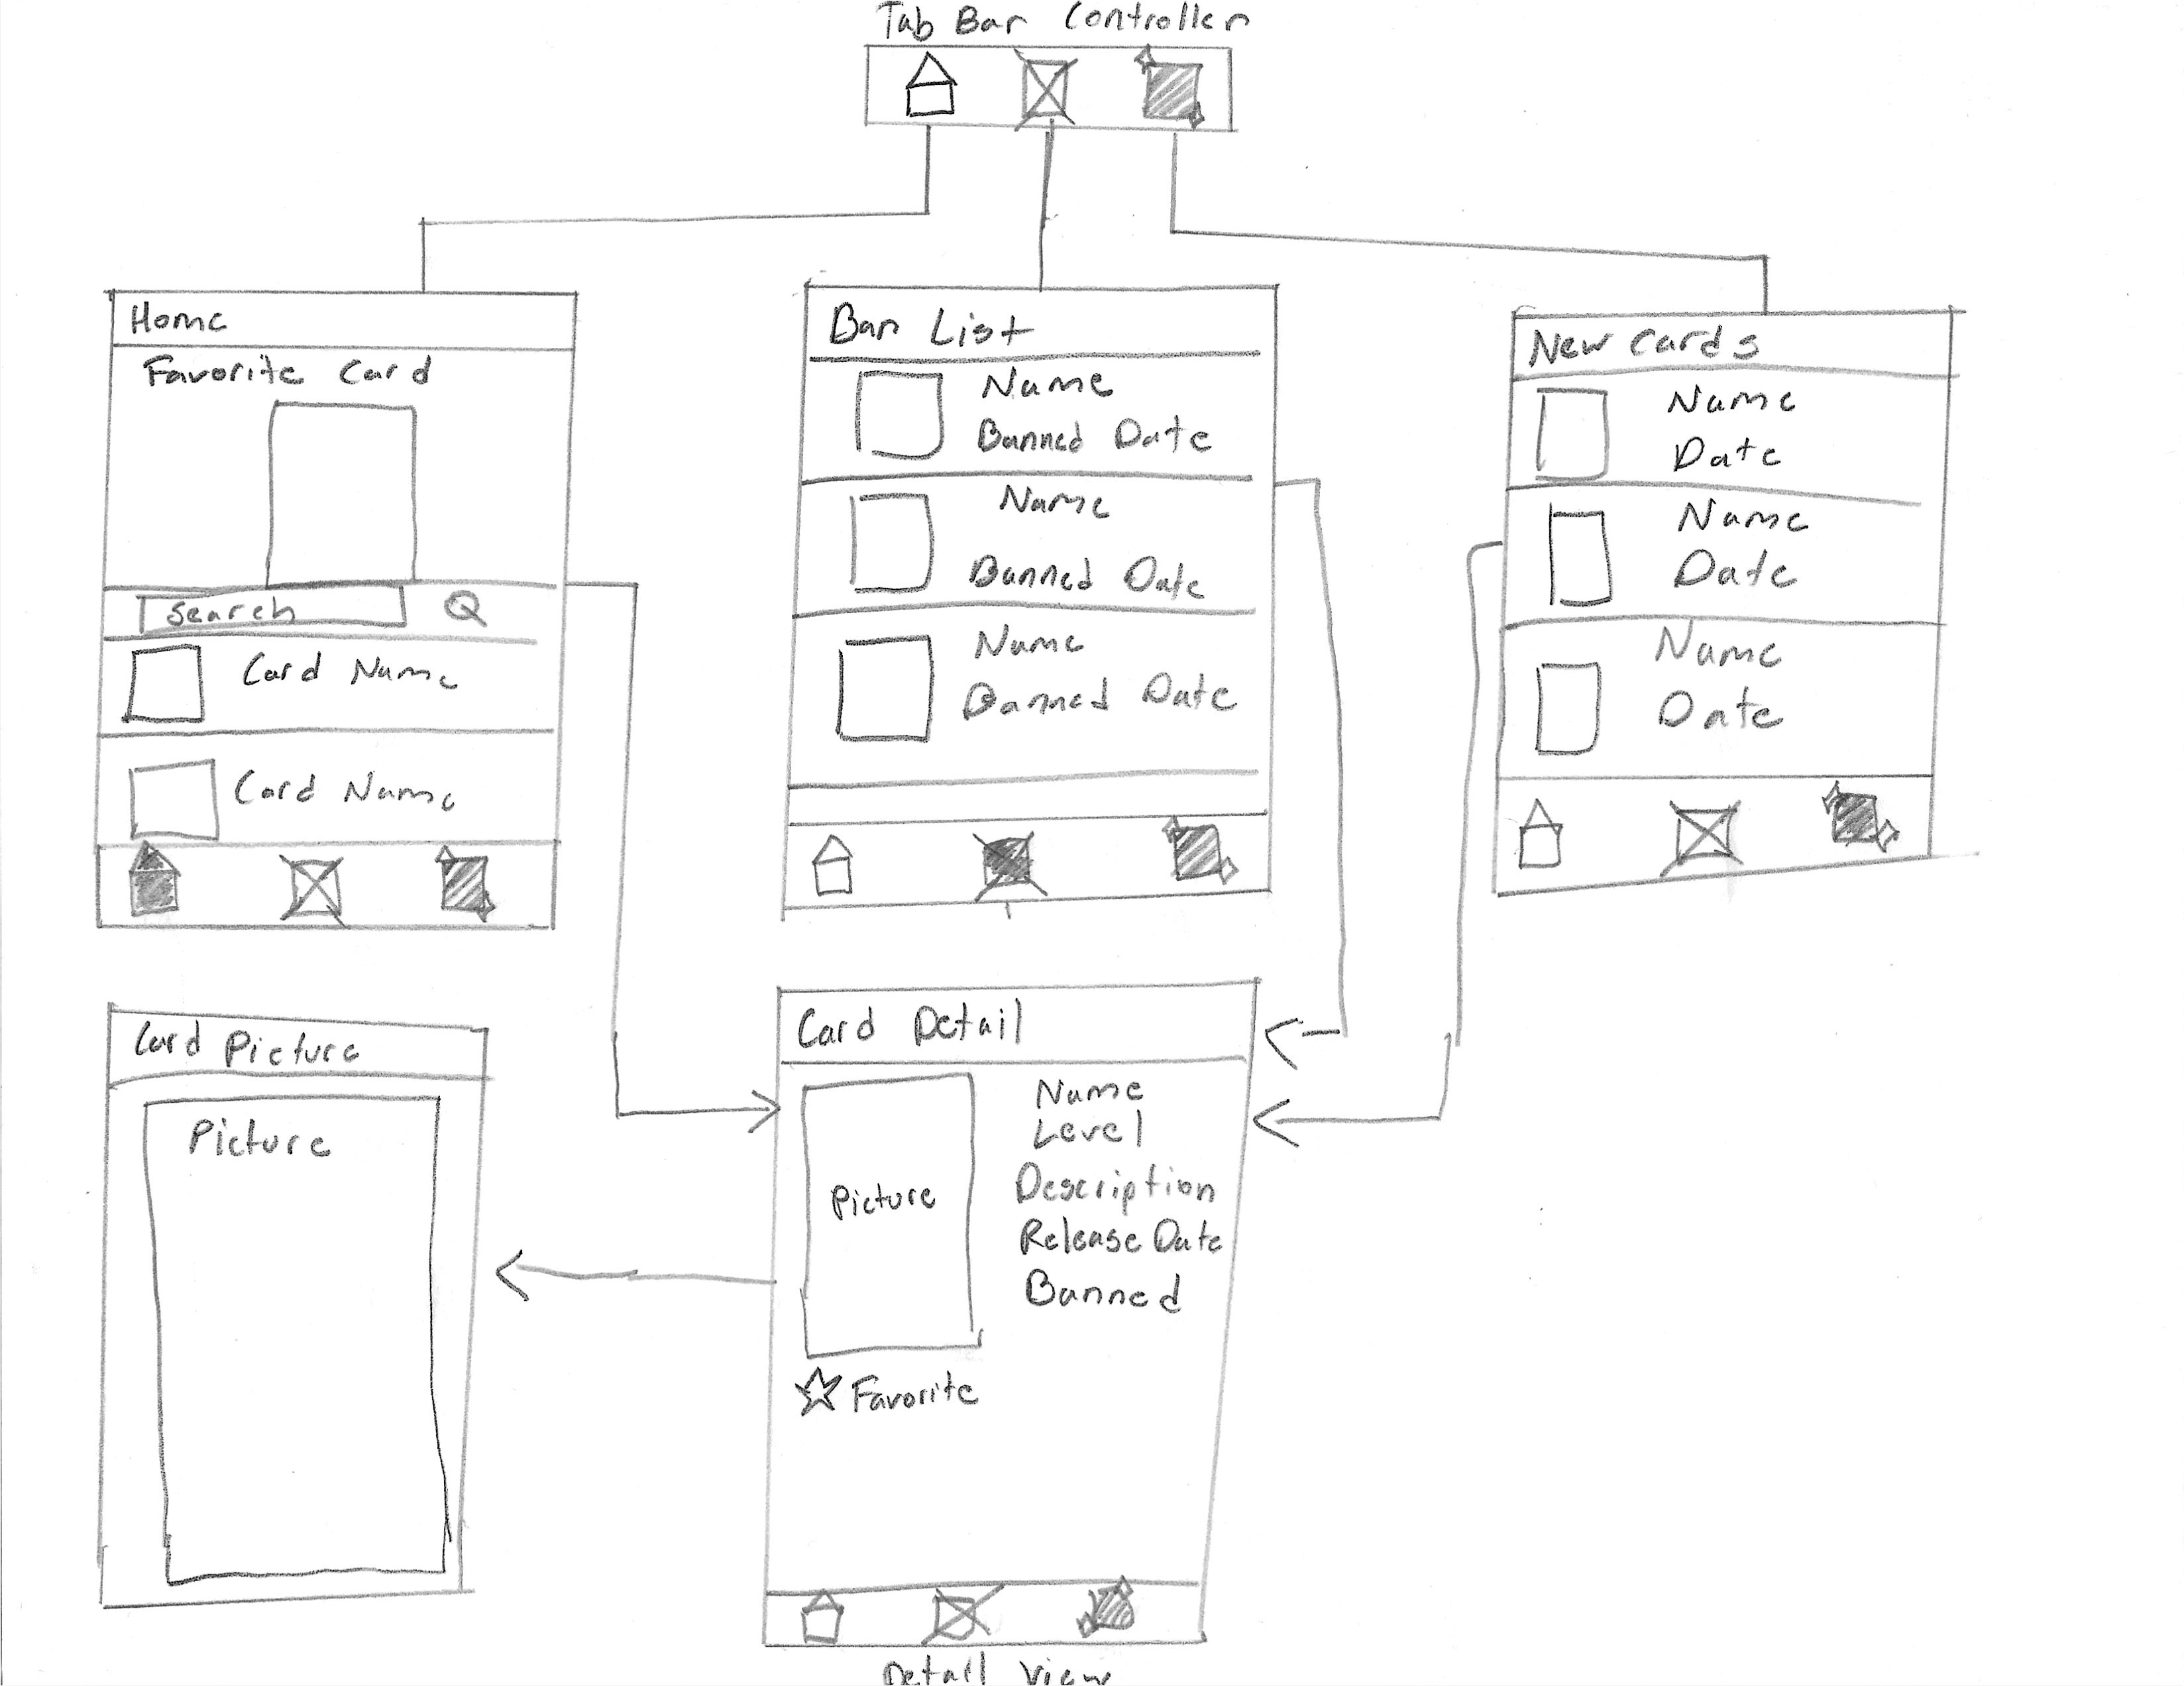 Tab Bar Controller
Home
Favorite Card
Search
Card Name
Card Name
Ban List
Name
Banned Date
Name
Banned Date
Name
Banned Date
New Cards
Name
Date
Name
Date
Name
Date
Card Picture
Picture
Card Detail
Picture
Name
Level
Description
Release Date
Banned
Favorite
Detail View